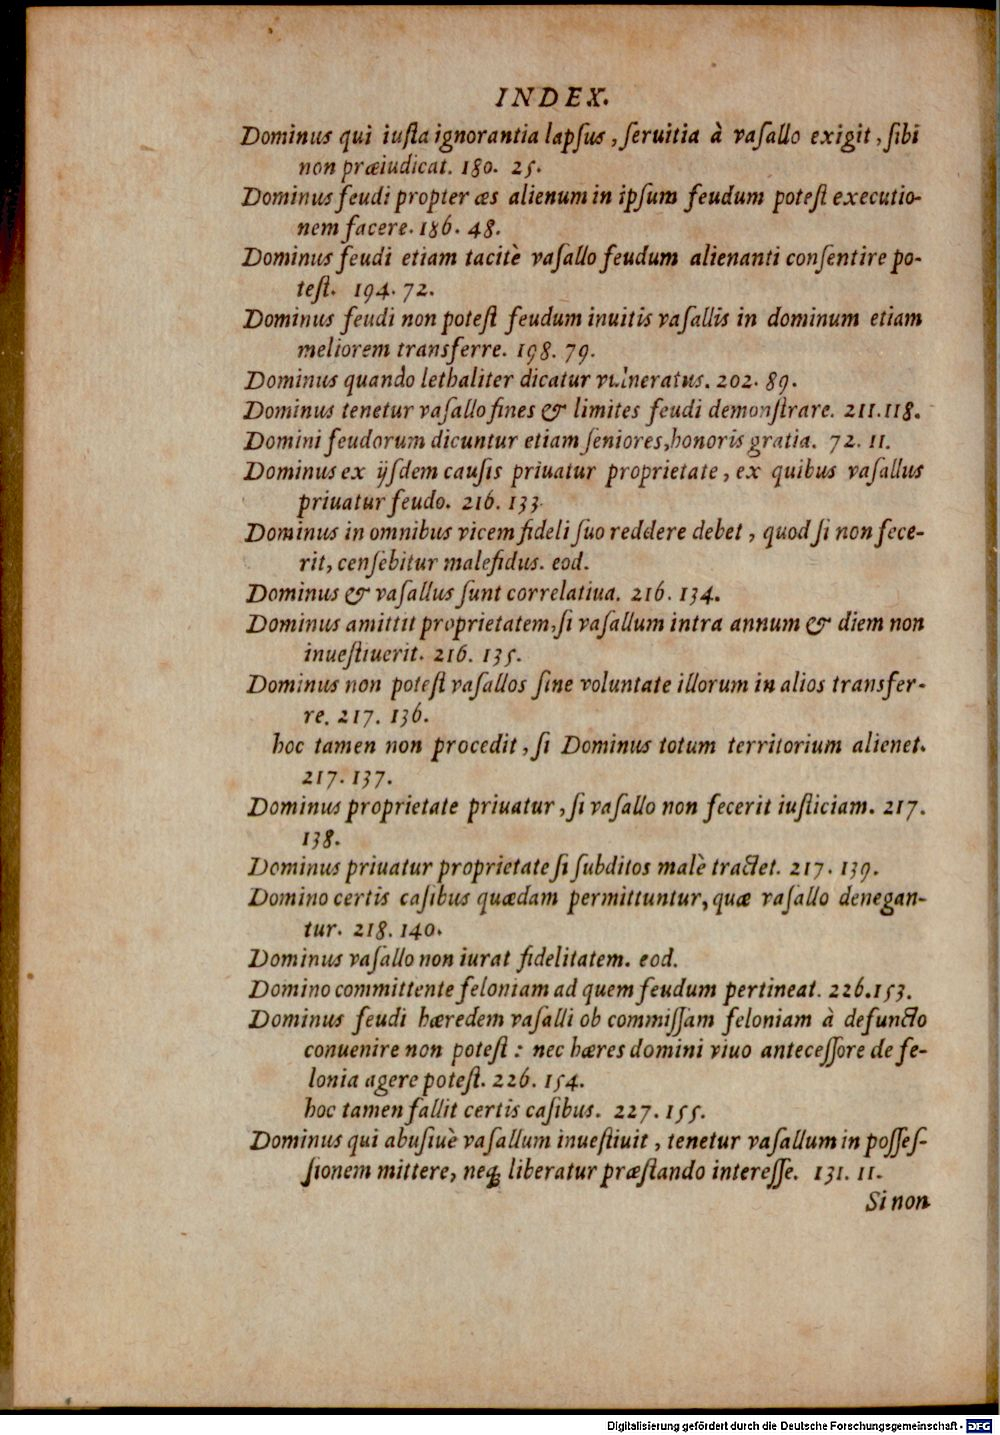 INDEX.
Dominus qui iuſta ignorantia lapſus, ſeruitia à vaſallo exigit, ſibi
non præiudicat. 180. 25.
Dominus feudi propter æs alienum in ipſum feudum poteſt executio-
nem facere. 186. 48.
Dominus feudi etiam tacitè vaſallo feudum alienanti conſentire po-
teſt. 194. 72.
Dominus feudi non poteſt feudum inuitis vaſallis in dominum etiam
meliorem transferre. 198. 79.
Dominus quando lethaliter dicatur vulneratus. 202. 89.
Dominus tenetur vaſallo fines & limites feudi demonſtrare. 211. 118.
Domini feudorum dicuntur etiam ſeniores, honoris gratia. 72. 11.
Dominus ex ijſdem cauſis priuatur proprietate, ex quibus vaſallus
priuatur feudo. 216. 133.
Dominus in omnibus vicem fideli ſuo reddere debet, quod ſi non fece-
rit, cenſebitur malefidus. eod.
Dominus & vaſallus ſunt correlatiua. 216. 134.
Dominus amittit proprietatem, ſi vaſallum intra annum & diem non
inueſtiuerit. 216. 135.
Dominus non poteſt vaſallos ſine voluntate illorum in alios transfer-
re. 217. 136.
hoc tamen non procedit, ſi Dominus totum territorium alienet.
217. 137.
Dominus proprietate priuatur, ſi vaſallo non fecerit iuſticiam. 217.
138.
Dominus priuatur proprietate ſi ſubditos malè tractet. 217. 139.
Domino certis caſibus quædam permittuntur, quæ vaſallo denegan-
tur. 218. 140.
Dominus vaſallo non iurat fidelitatem. eod.
Domino committente feloniam ad quem feudum pertineat. 226. 153.
Dominus feudi hæredem vaſalli ob commiſſam feloniam à defuncto
conuenire non poteſt: nec hæres domini viuo anteceſſore de fe-
lonia agere poteſt. 226. 154.
hoc tamen fallit certis caſibus. 227. 155.
Dominus qui abuſiuè vaſallum inueſtiuit, tenetur vaſallum in poſſeſ-
ſionem mittere, neq; liberatur præſtando intereſſe. 131. 11.
Si non
Digitalisierung gefördert durch die Deutsche Forschungsgemeinschaft - DFG